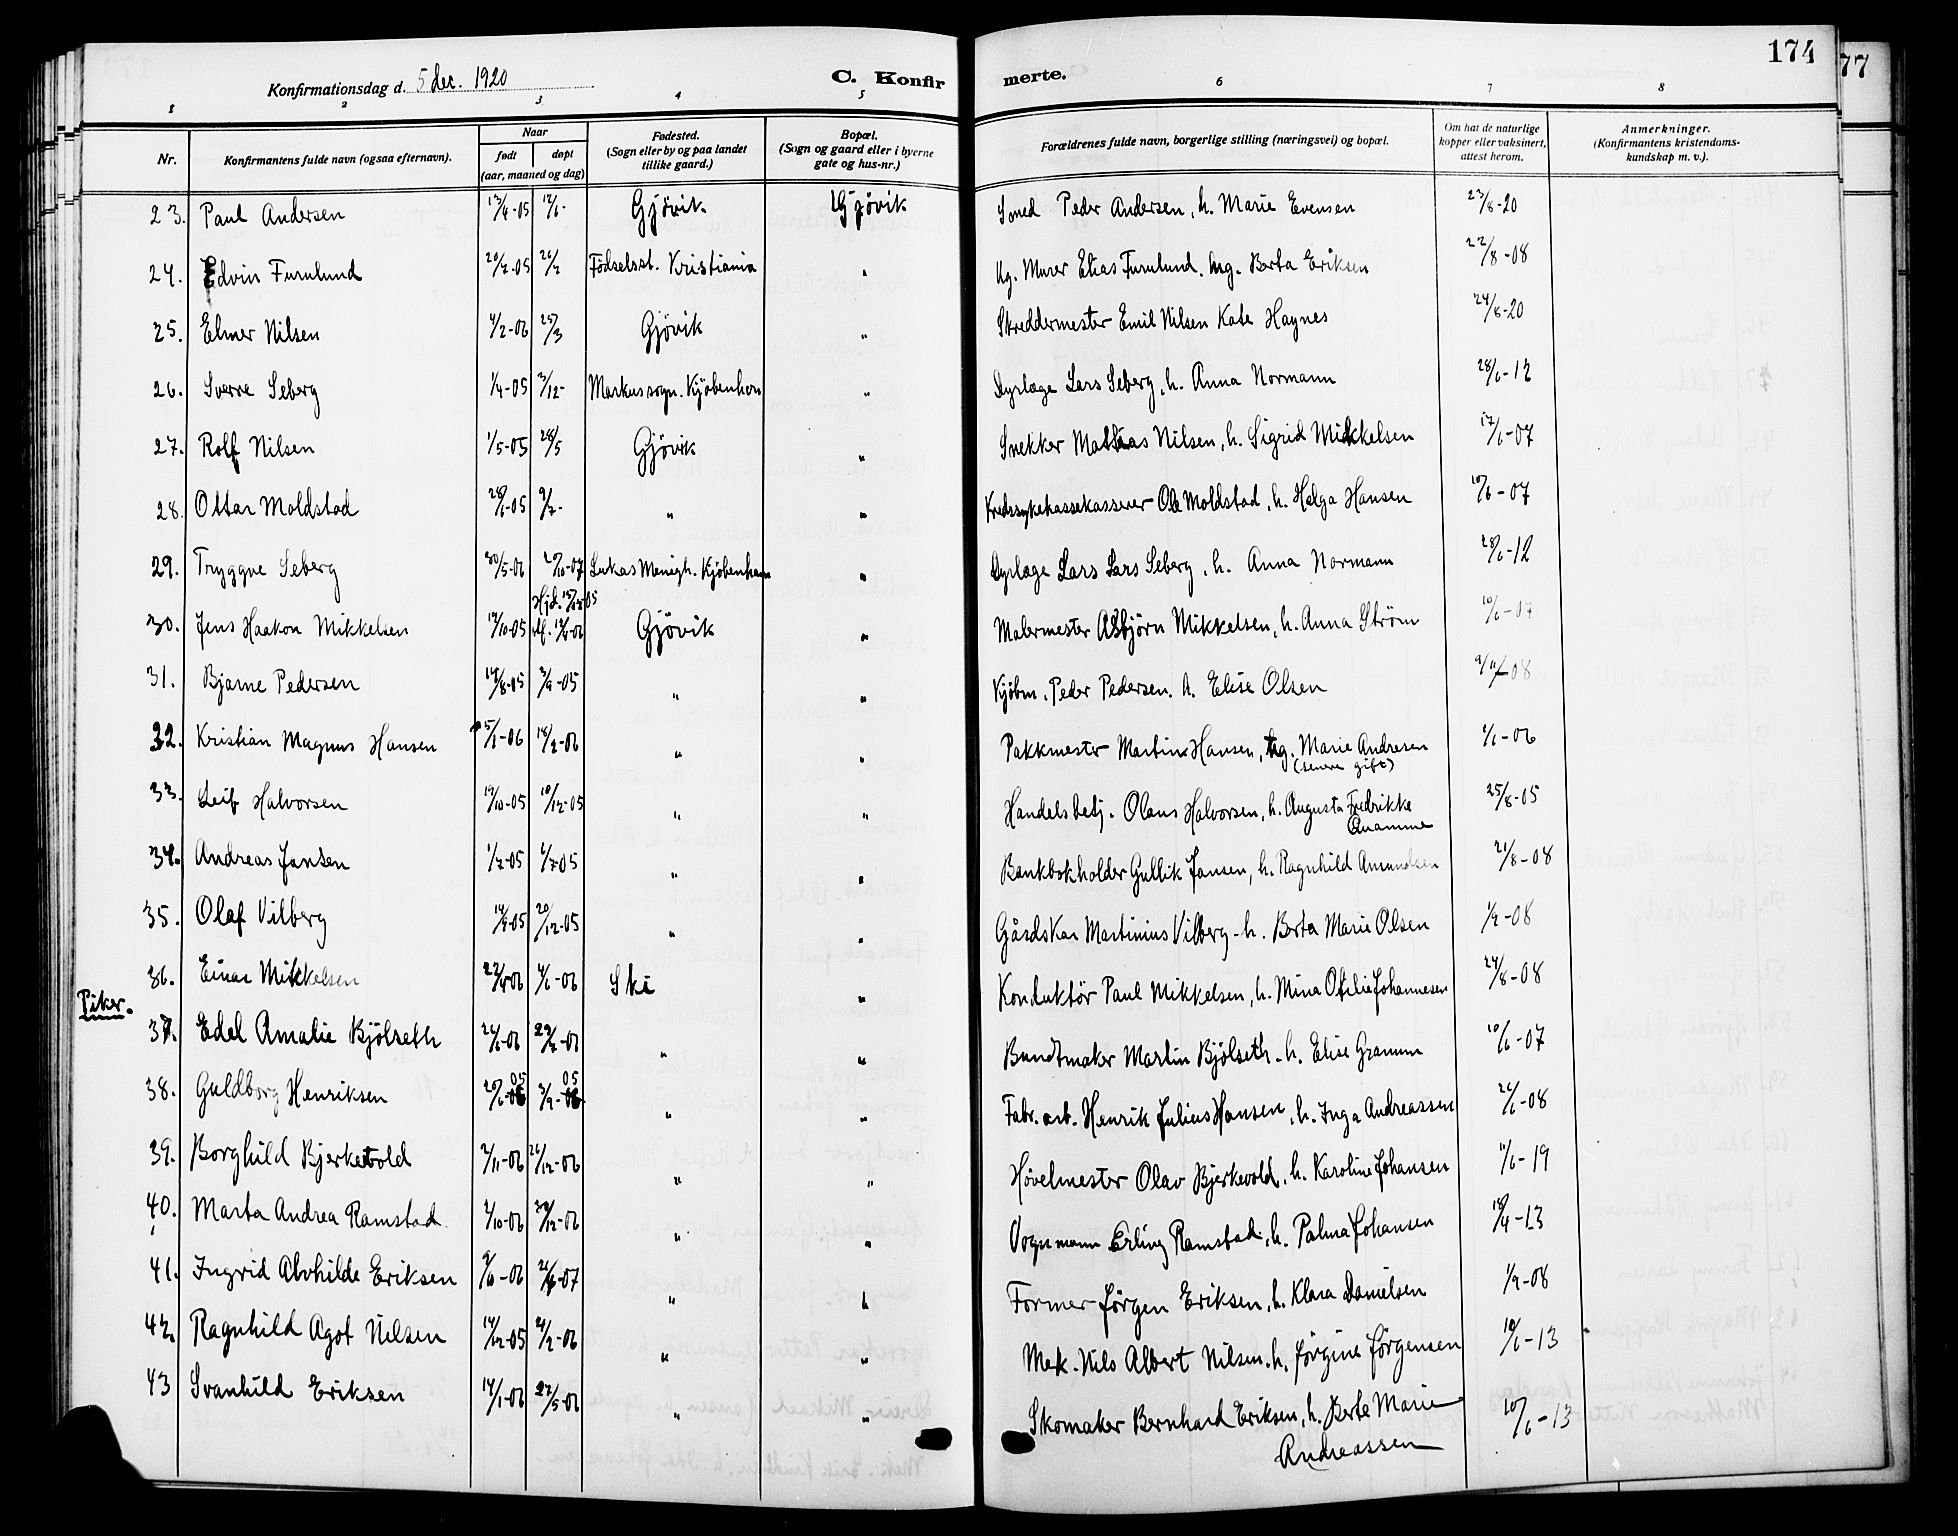 174
77
Konfirmationsdag d. 5 dec. 1920
C. Konfirmerte.
1 2 3 4 5 6 7 8
Nr.
Konfirmantens fulde navn (ogsaa efternavn).
Naar
født døpt
(aar, maaned og dag)
Fødested.
(Sogn eller by og paa landet
tillike gaard.)
Bopæl.
(Sogn og gaard eller i byerne
gate og hus-nr.)
Forældrenes fulde navn, borgerlige stilling (næringsvei) og bopæl.
Om hat de naturlige
kopper eller vaksinert,
attest herom.
Anmerkninger.
(Konfirmantens kristendoms-
kundskap m. v.).
23. Paul Andersen 13/4-05 12/6- Gjövik Gjövik Smed Peder Andersen, h. Marie Evensen 23/8-20
24. Edvin Furulund 20/2-05 26/2 Födselsst. Kristiania " Ug. Murer Elias Furulund, ug. Berta Eriksen 22/8-08
25. Elmer Nilsen 4/2-06 25/3 Gjövik " Skreddermester Emil Nilsen Kate Haynes 24/8-20
26. Sverre Seberg 1/4-05 3/12- Markus sogn. Kjöbenhavn " Dyrlæge Lars Seberg, h. Anna Normann 28/6-12
27. Rolf Nilsen 1/5-05 28/5 Gjövik " Snekker Mathias Nilsen, h. Sigrid Mikkelsen 17/6-07
28. Ottar Moldstad 28/6-05 9/7- " " Kredssykekassekasserer Ole Moldstad, h. Helga Hansen 10/6-07
29. Tryggve Seberg 30/5-06 2/10-07 Lukas Menigh. Kjöbenhavn " Dyrlæge Lars Lars Seberg, h. Anna Normann 28/6-12
30. Jens Haakon Mikkelsen 17/10-05 Gjövik " Malermester Asbjörn Mikkelsen, h. Anna Ström 10/6-07
31. Bjarne Pedersen 14/8-05 3/9-05 " " Kjöbm. Peder Pedersen. h. Elise Olsen 9/11-08
32. Kristian Magnus Hansen 5/1-06 18/2-06 " " Pakkmester Martin Hansen, ug. Marie Andresen 1/6-06
(senere gift)
33. Leif Halvorsen 13/10-05 10/12-05 " " Handelsbetj. Olaus Halvorsen, h. Augusta Fredrikke 25/8-05
Qvamme
34. Andreas Jansen 1/2-05 2/7-05 " " Bankbokholder Gullik Jansen, h. Ragnhild Amundsen 21/8-08
35. Olaf Vilberg 14/9-05 20/12-05 " " Gårdskar Martinius Vilberg - h. Berta Marie Olsen 1/9-08
36. Einar Mikkelsen 4/6-06 Ski " Konduktör Paul Mikkelsen, h. Mina Otilie Johannesen 24/8-08
Piker.
37. Edel Amalie Bjölseth " " Bundtmaker Martin Bjölseth - h. Elise Gramm 10/6-07
38. Guldborg Henriksen 20/6-05 3/9-05 " " Fabr. arb. Henrik Julius Hansen, h. Inga Andreassen 26/6-08
39. Borghild Bjerkevold 2/11-06 26/12-06 " " Høvelmester Olav Bjerkevold, h. Karoline Johansen 11/6-19
40. Marta Andrea Ramstad 2/10-06 " " Vognmann Erling Ramstad, h. Palma Johansen 18/4-13
41. Ingrid Alvhilde Eriksen 9/6-06 " " Former Jörgen Eriksen, h. Klara Danielsen 1/9-08
42. Ragnhild Agot Nilsen 14/12-05 4/2-06 " " Mek. Nils Albert Nilsen, h. Jörgine Jörgensen 10/6-13
43 Svanhild Eriksen 14/1-06 27/5-06 " " Skomaker Bernhard Eriksen, h. Berte Marie 10/6-13
Andreassen